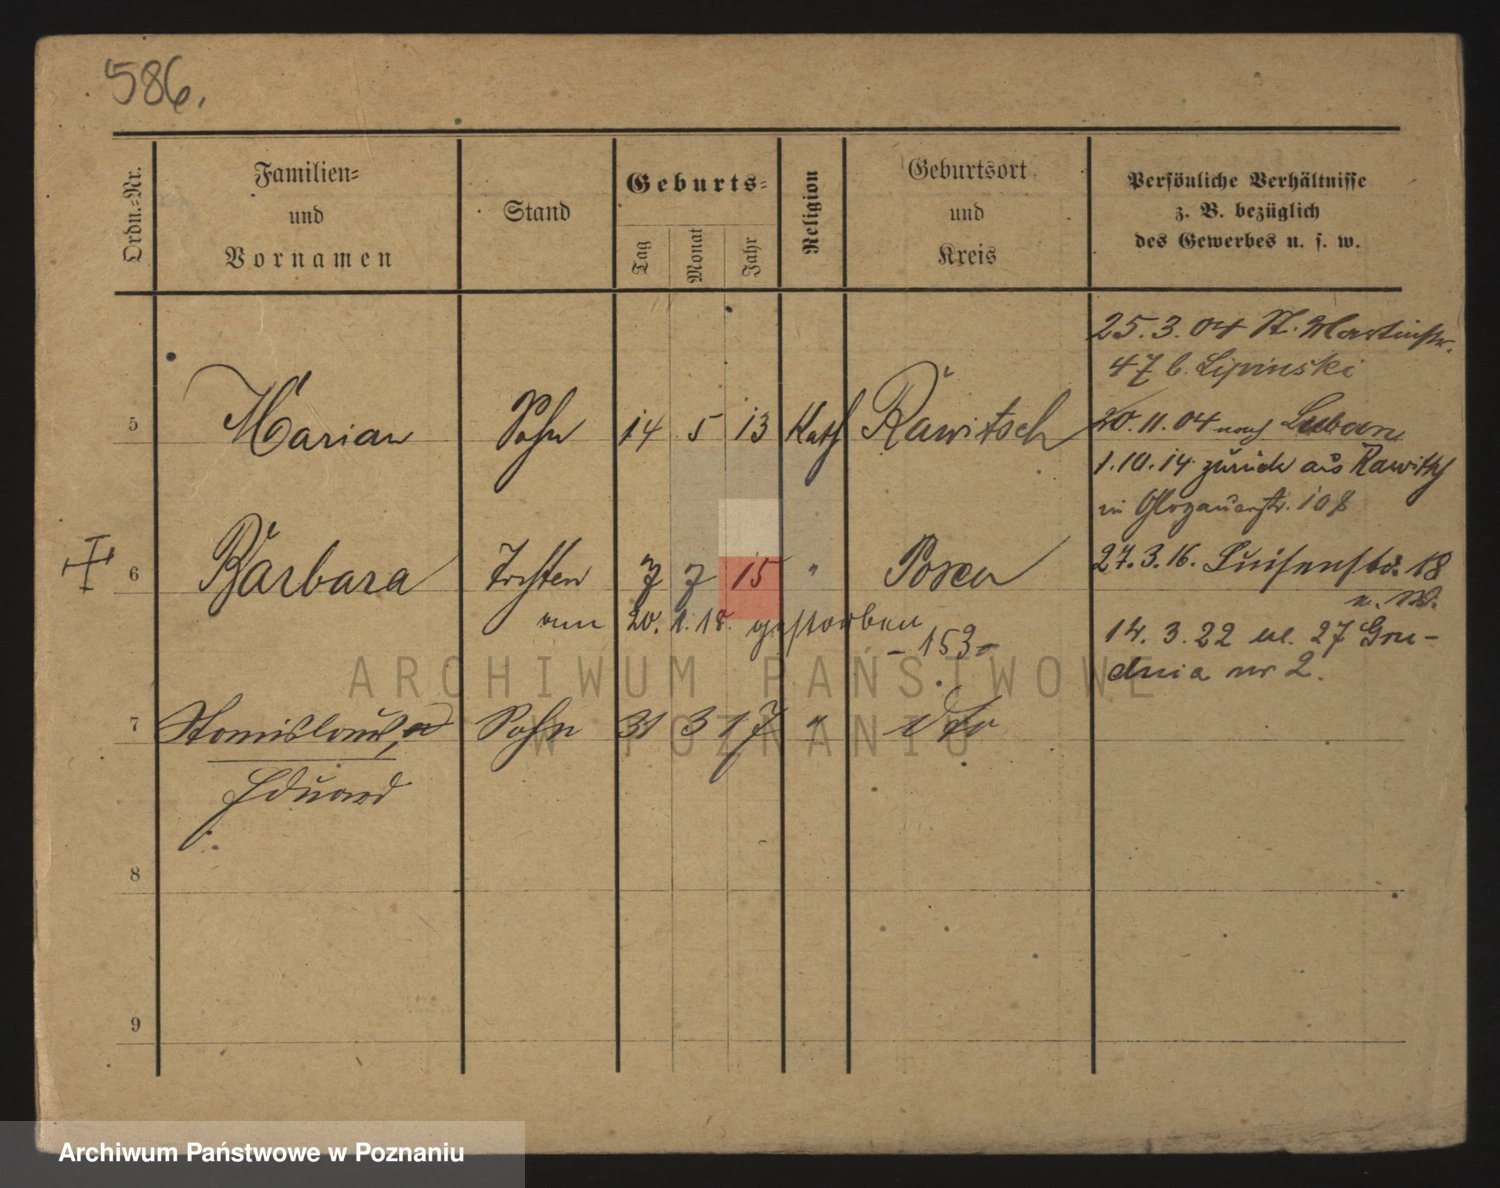 586.
Ordn.-Nr.
Familien-
und
Vornamen
Stand
Geburts-
Tag
Monat
Jahr
Religion
Geburtsort
und
Kreis
Persönliche Verhältnisse
z. B. bezüglich
des Gewerbes u. s. w.
25.3.04 St. Martinstr.
47 b. Lipinski
5 Marian Sohn 14 5 13 Kath Rawitsch 20.11.04 nach Luban
1.10.14 zurück aus Rawitsch
in Glogauerstr. 108
6 Barbara Tochter 7 7 15 " Posen 27.3.16. Luisenstr. 18
am 20. 1. 18. gestorben
- 153 -
14. 3. 22 ul. 27 Gru-
dnia nr 2.
7 Stanislaus, Sohn 31 3 17 " dto
Eduard
8
9
ARCHIWUM PAŃSTWOWE
W POZNANIU
Archiwum Państwowe w Poznaniu